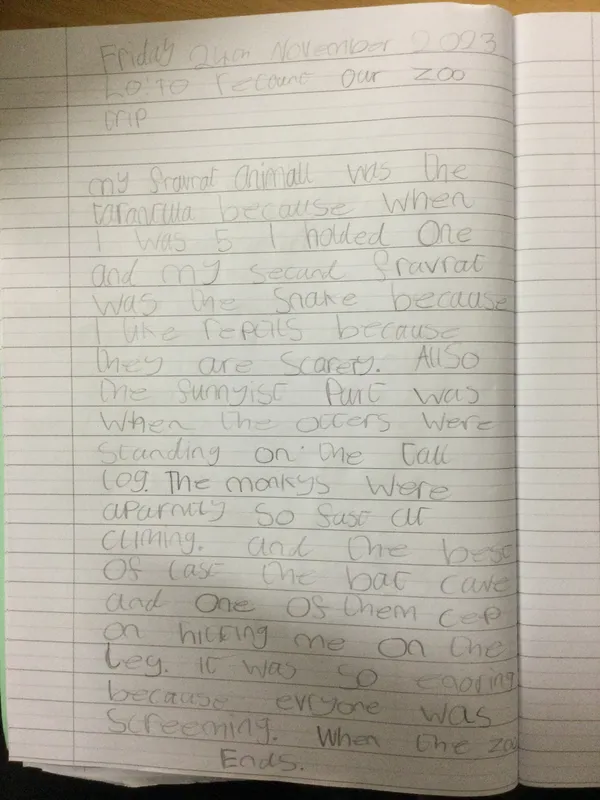 Friday 24th November 2023
Lo: to recount our zoo
trip
my fravrat animall was the
tarantulla because when
I was 5 I holded one
and my secand fravrat
was the snake because
I like reptils because
they are scarety. Allso
the funnyist part was
when the otters were
standing on the tall
log. The monkys were
aparntly so fast at
climing. and the best
of last the bat cave
and one of them cep
on hitting me on the
leg. it was so eqoring
because evryone was
screeming. When the zoo
Ends.